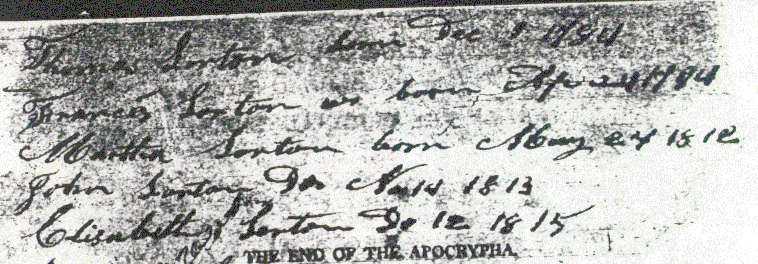 Thomas Sexton born Dec 1784
Frances Sexton born Ap 24 1784
Martha Sexton born May 24 1812
John Sexton Do No 14 1813
Elisabeth Sexton Do 12 1815
THE END OF THE APOCRYPHA.